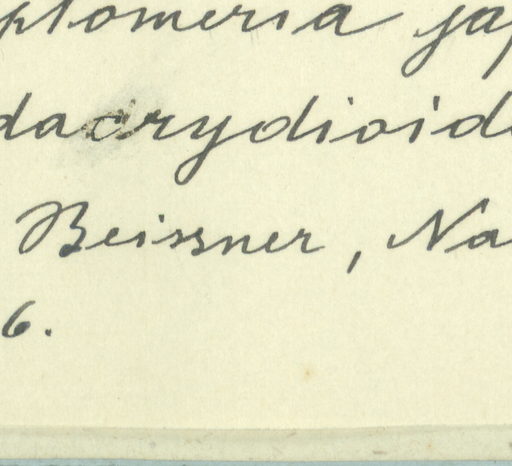 ptomeria jap
dacrydioide
Beissner, Na
6.